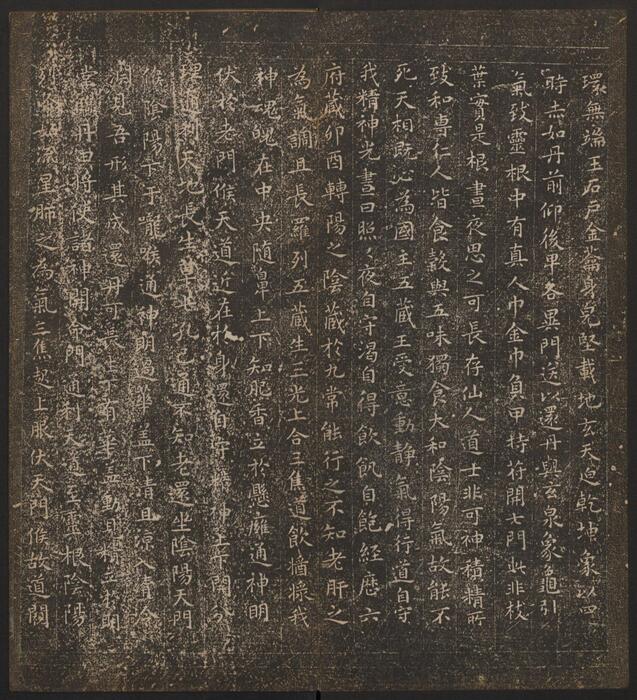 環無端玉石戶金籥身完堅載地玄天迫乾坤象以四
時赤如丹前仰後卑各異門送以還丹與玄泉象龜引
氣致靈根中有真人巾金巾負甲持符開七門此非枝
葉實是根晝夜思之可長存仙人道士非可神積精所
致和專仁人皆食穀與五味獨食大和陰陽氣故能不
死天相既心為國主五藏王受意動靜氣得行道自守
我精神光晝日照照夜自守渴自得飲飢自飽經歷六
府藏卯酉轉陽之陰藏於九常能行之不知老肝之
為氣調且長羅列五藏生三光上合三焦道飲醬漿我
神魂魄在中央隨鼻上下知肥香立於懸廱通神明
伏於老門候天道近在於身還自守精神上下開分
理通利天地長生草七孔已通不知老還坐陰陽天門
候陰陽下于嚨喉通神明過華蓋下清且涼入清冷
淵見吾形其成還丹可長生下有華蓋動見精立於明
堂臨丹田將使諸神開命門通利天道至靈根陰陽
列布如流星肺之為氣三焦起上服伏天門候故道闚